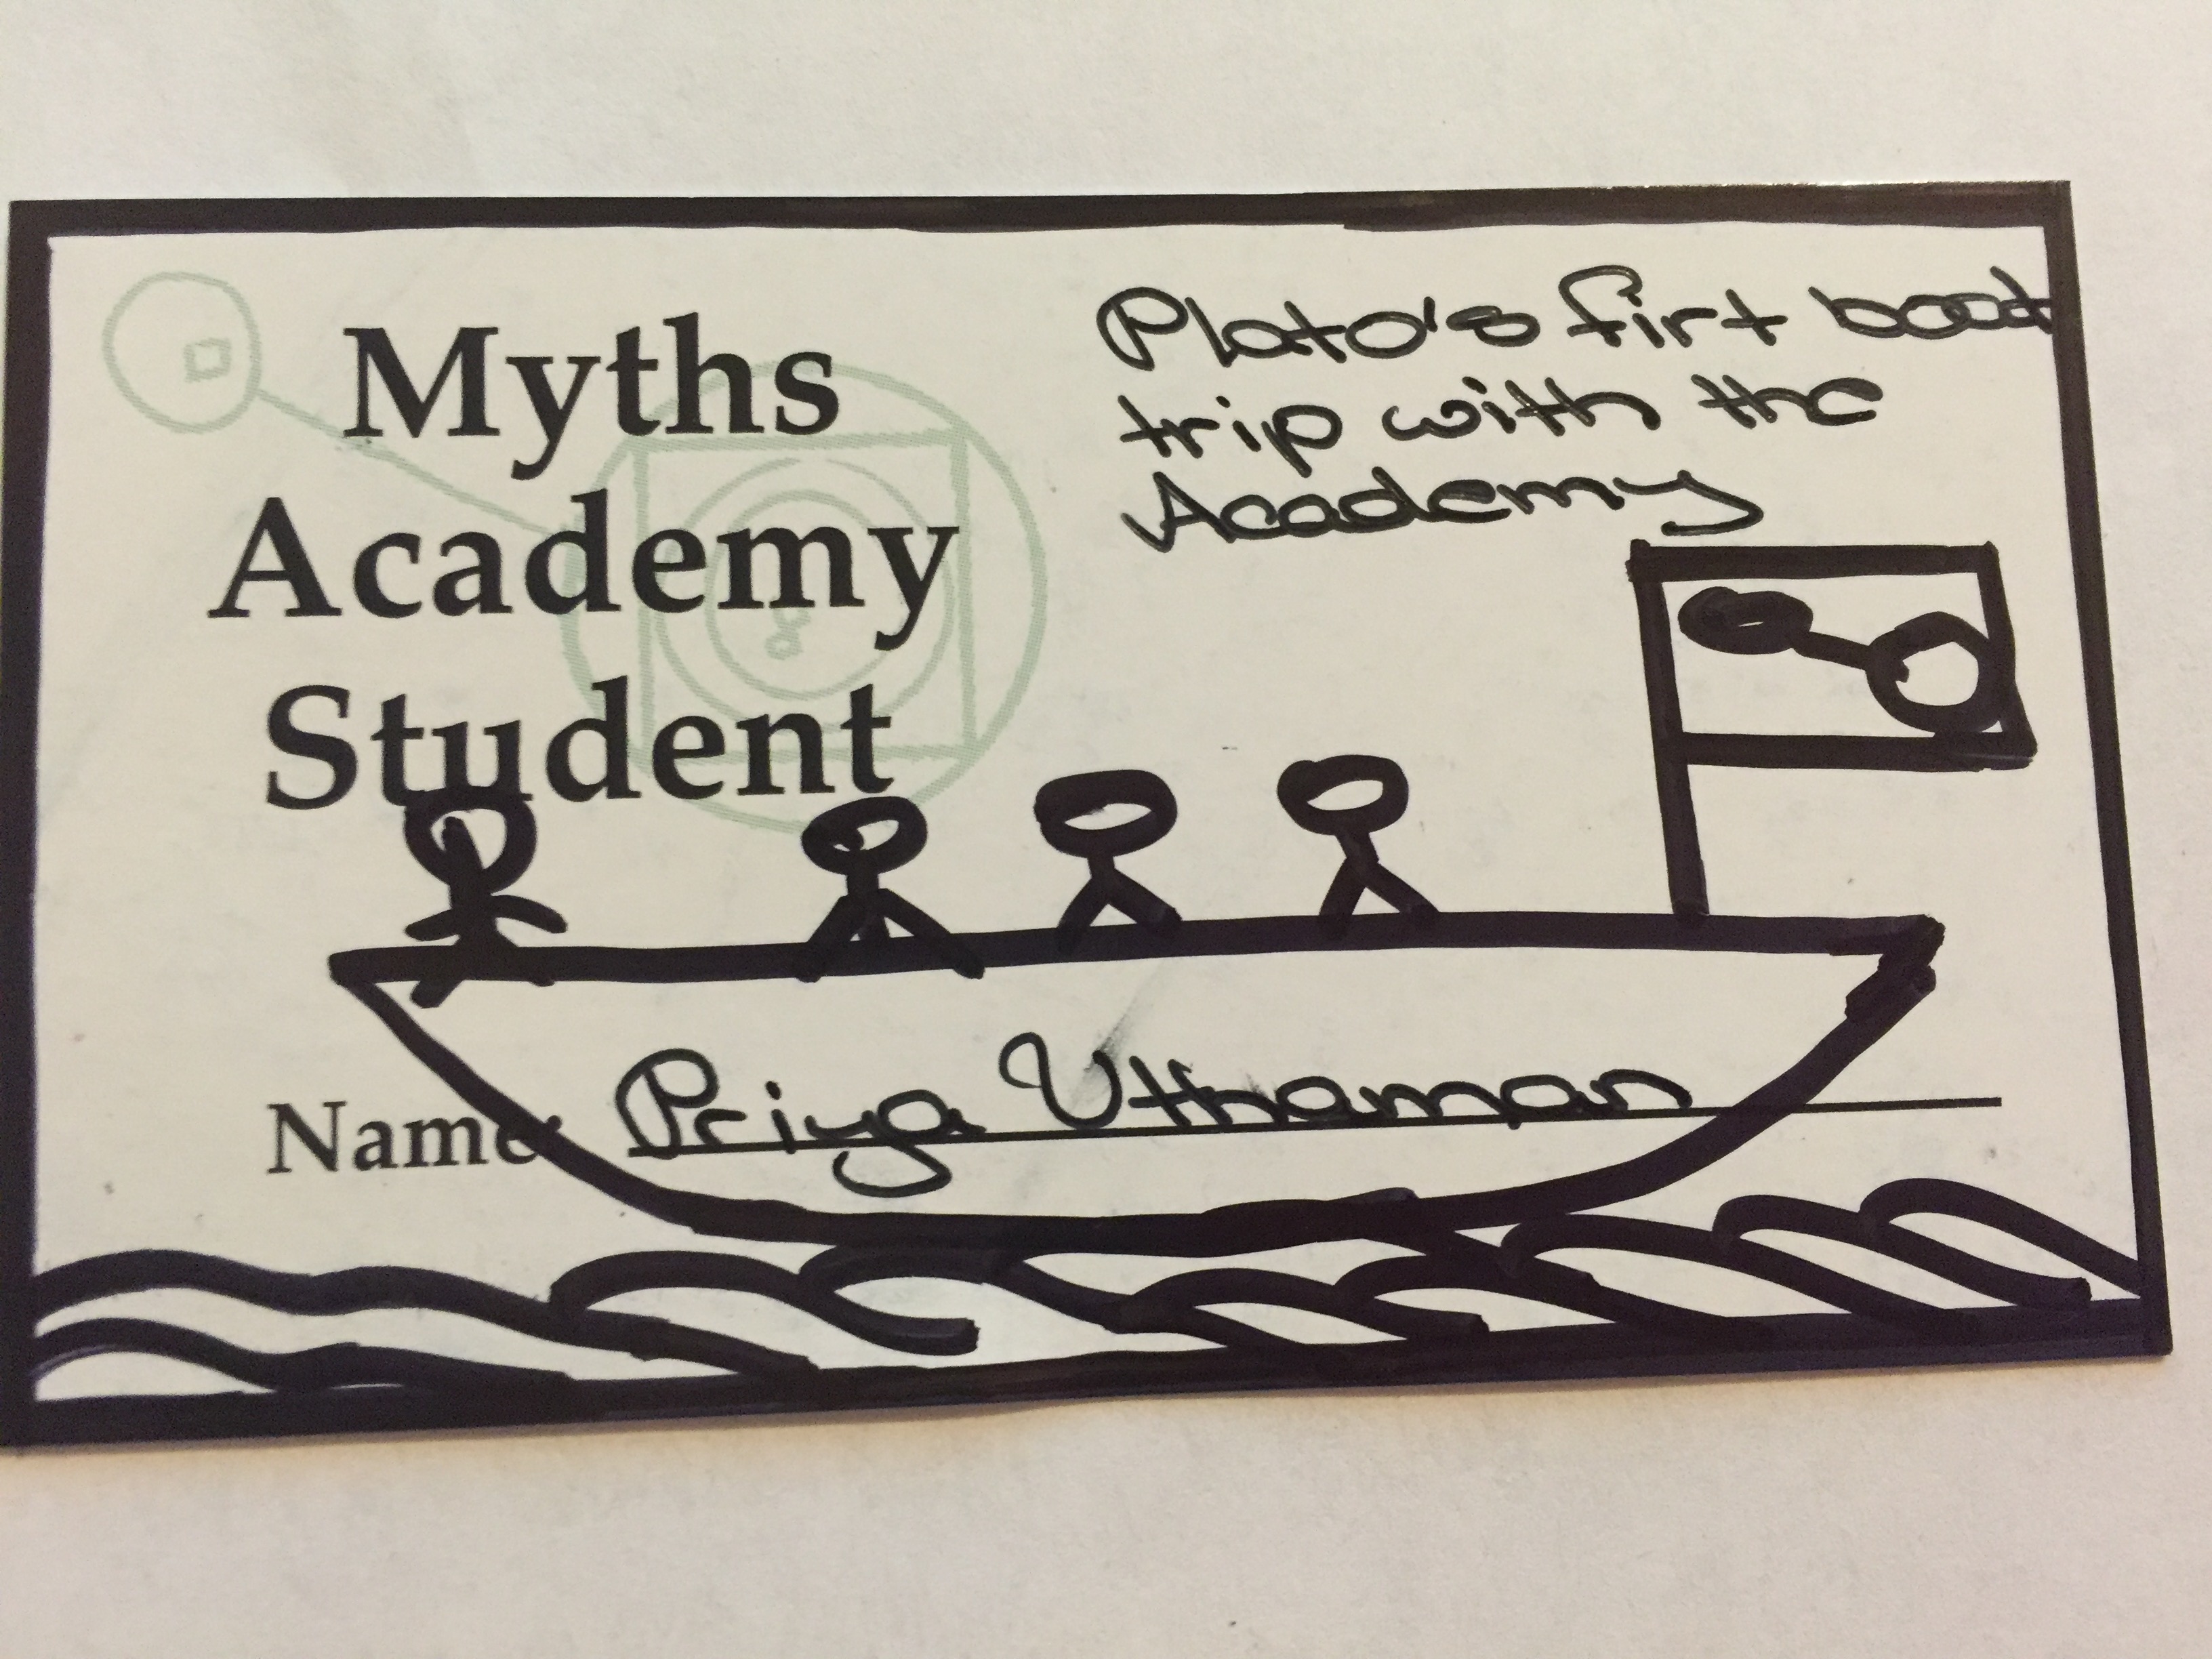 Myths
Academy
Student
Plato's firt boat
trip with the
Academy
8
Name: Priya Uthaman